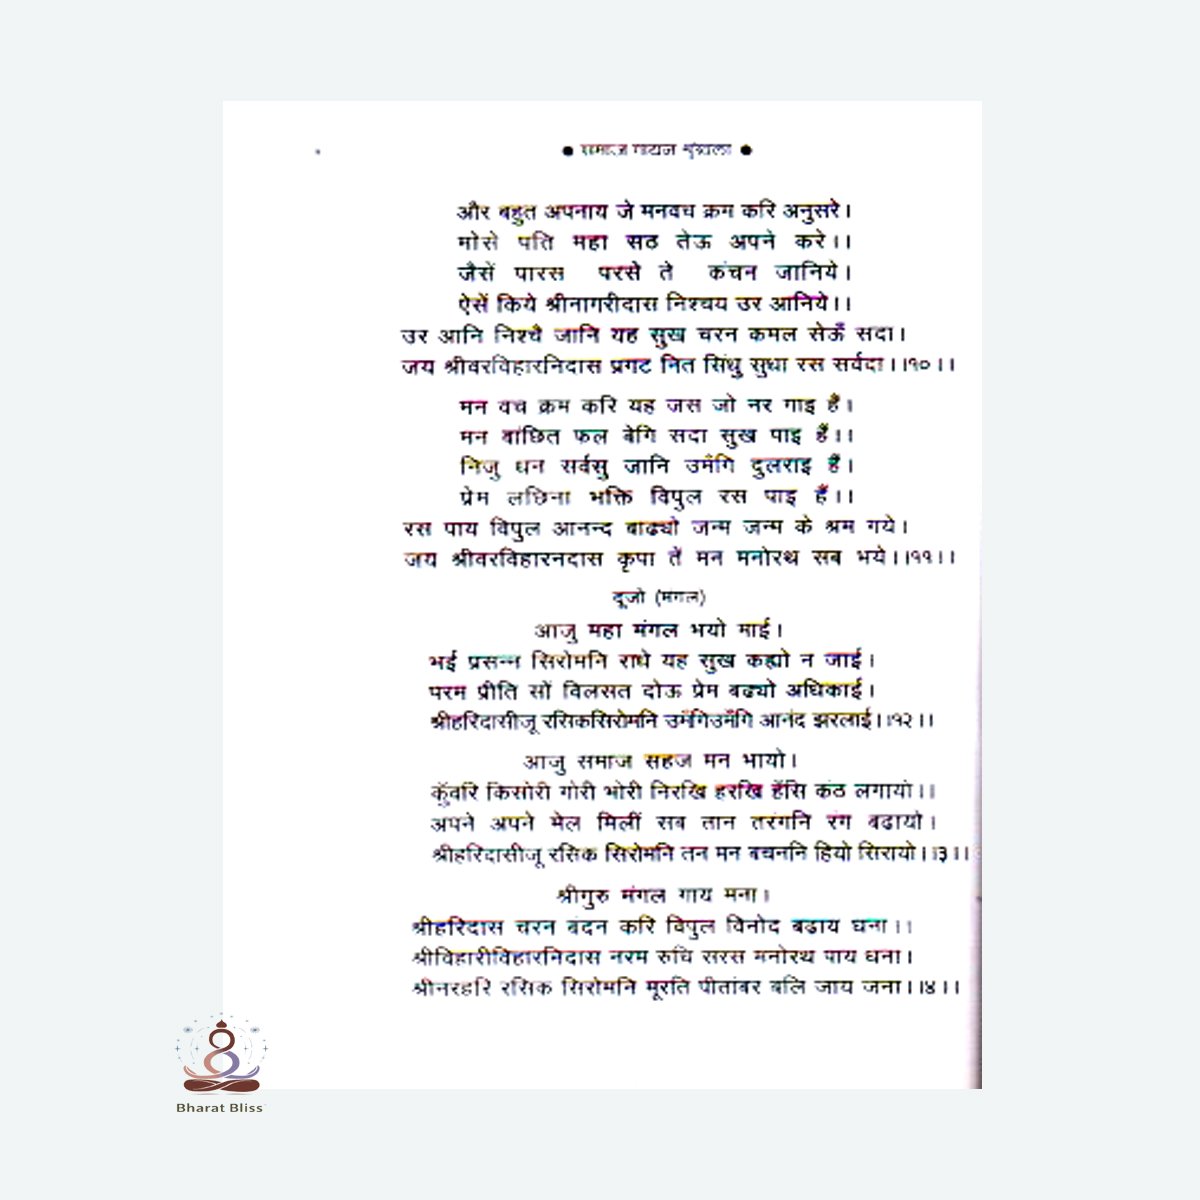 ● समाज गायन श्रृंखला ●
और बहुत अपनाय जे मनवच क्रम करि अनुसरे।
मोसे पति महा सठ तेऊ अपने करे।।
जैसें पारस परसे ते कंचन जानिये।
ऐसें किये श्रीनागरीदास निश्चय उर आनिये।।
उर आनि निश्चै जानि यह सुख चरन कमल सेऊँ सदा।
जय श्रीवरविहारनिदास प्रगट नित सिंधु सुधा रस सर्वदा।।१०।।
मन वच क्रम करि यह जस जो नर गाइ हैं।
मन बांछित फल बेगि सदा सुख पाइ हैं।।
निजु धन सर्वसु जानि उमँगि दुलराइ हैं।
प्रेम लछिना भक्ति विपुल रस पाइ हैं।।
रस पाय विपुल आनन्द बाढ्यो जन्म जन्म के श्रम गये।
जय श्रीवरविहारनदास कृपा तें मन मनोरथ सब भये।।११।।
दूजो (मंगल)
आजु महा मंगल भयो माई।
भई प्रसन्न सिरोमनि राधे यह सुख कह्यो न जाई।
परम प्रीति सों विलसत दोऊ प्रेम बढ्यो अधिकाई।
श्रीहरिदासीजू रसिकसिरोमनि उमँगिउमँगि आनंद झरलाई।।१२।।
आजु समाज सहज मन भायो।
कुँवरि किसोरी गोरी भोरी निरखि हरखि हँसि कंठ लगायो।।
अपने अपने मेल मिलीं सब तान तरंगनि रंग बढायो।
श्रीहरिदासीजू रसिक सिरोमनि तन मन बचननि हियो सिरायो।।३।।
श्रीगुरु मंगल गाय मना।
श्रीहरिदास चरन बंदन करि विपुल विनोद बढाय घना।।
श्रीविहारीविहारनिदास नरम रुचि सरस मनोरथ पाय धना।
श्रीनरहरि रसिक सिरोमनि मूरति पीतांबर बलि जाय जना।।४।।
Bharat Bliss